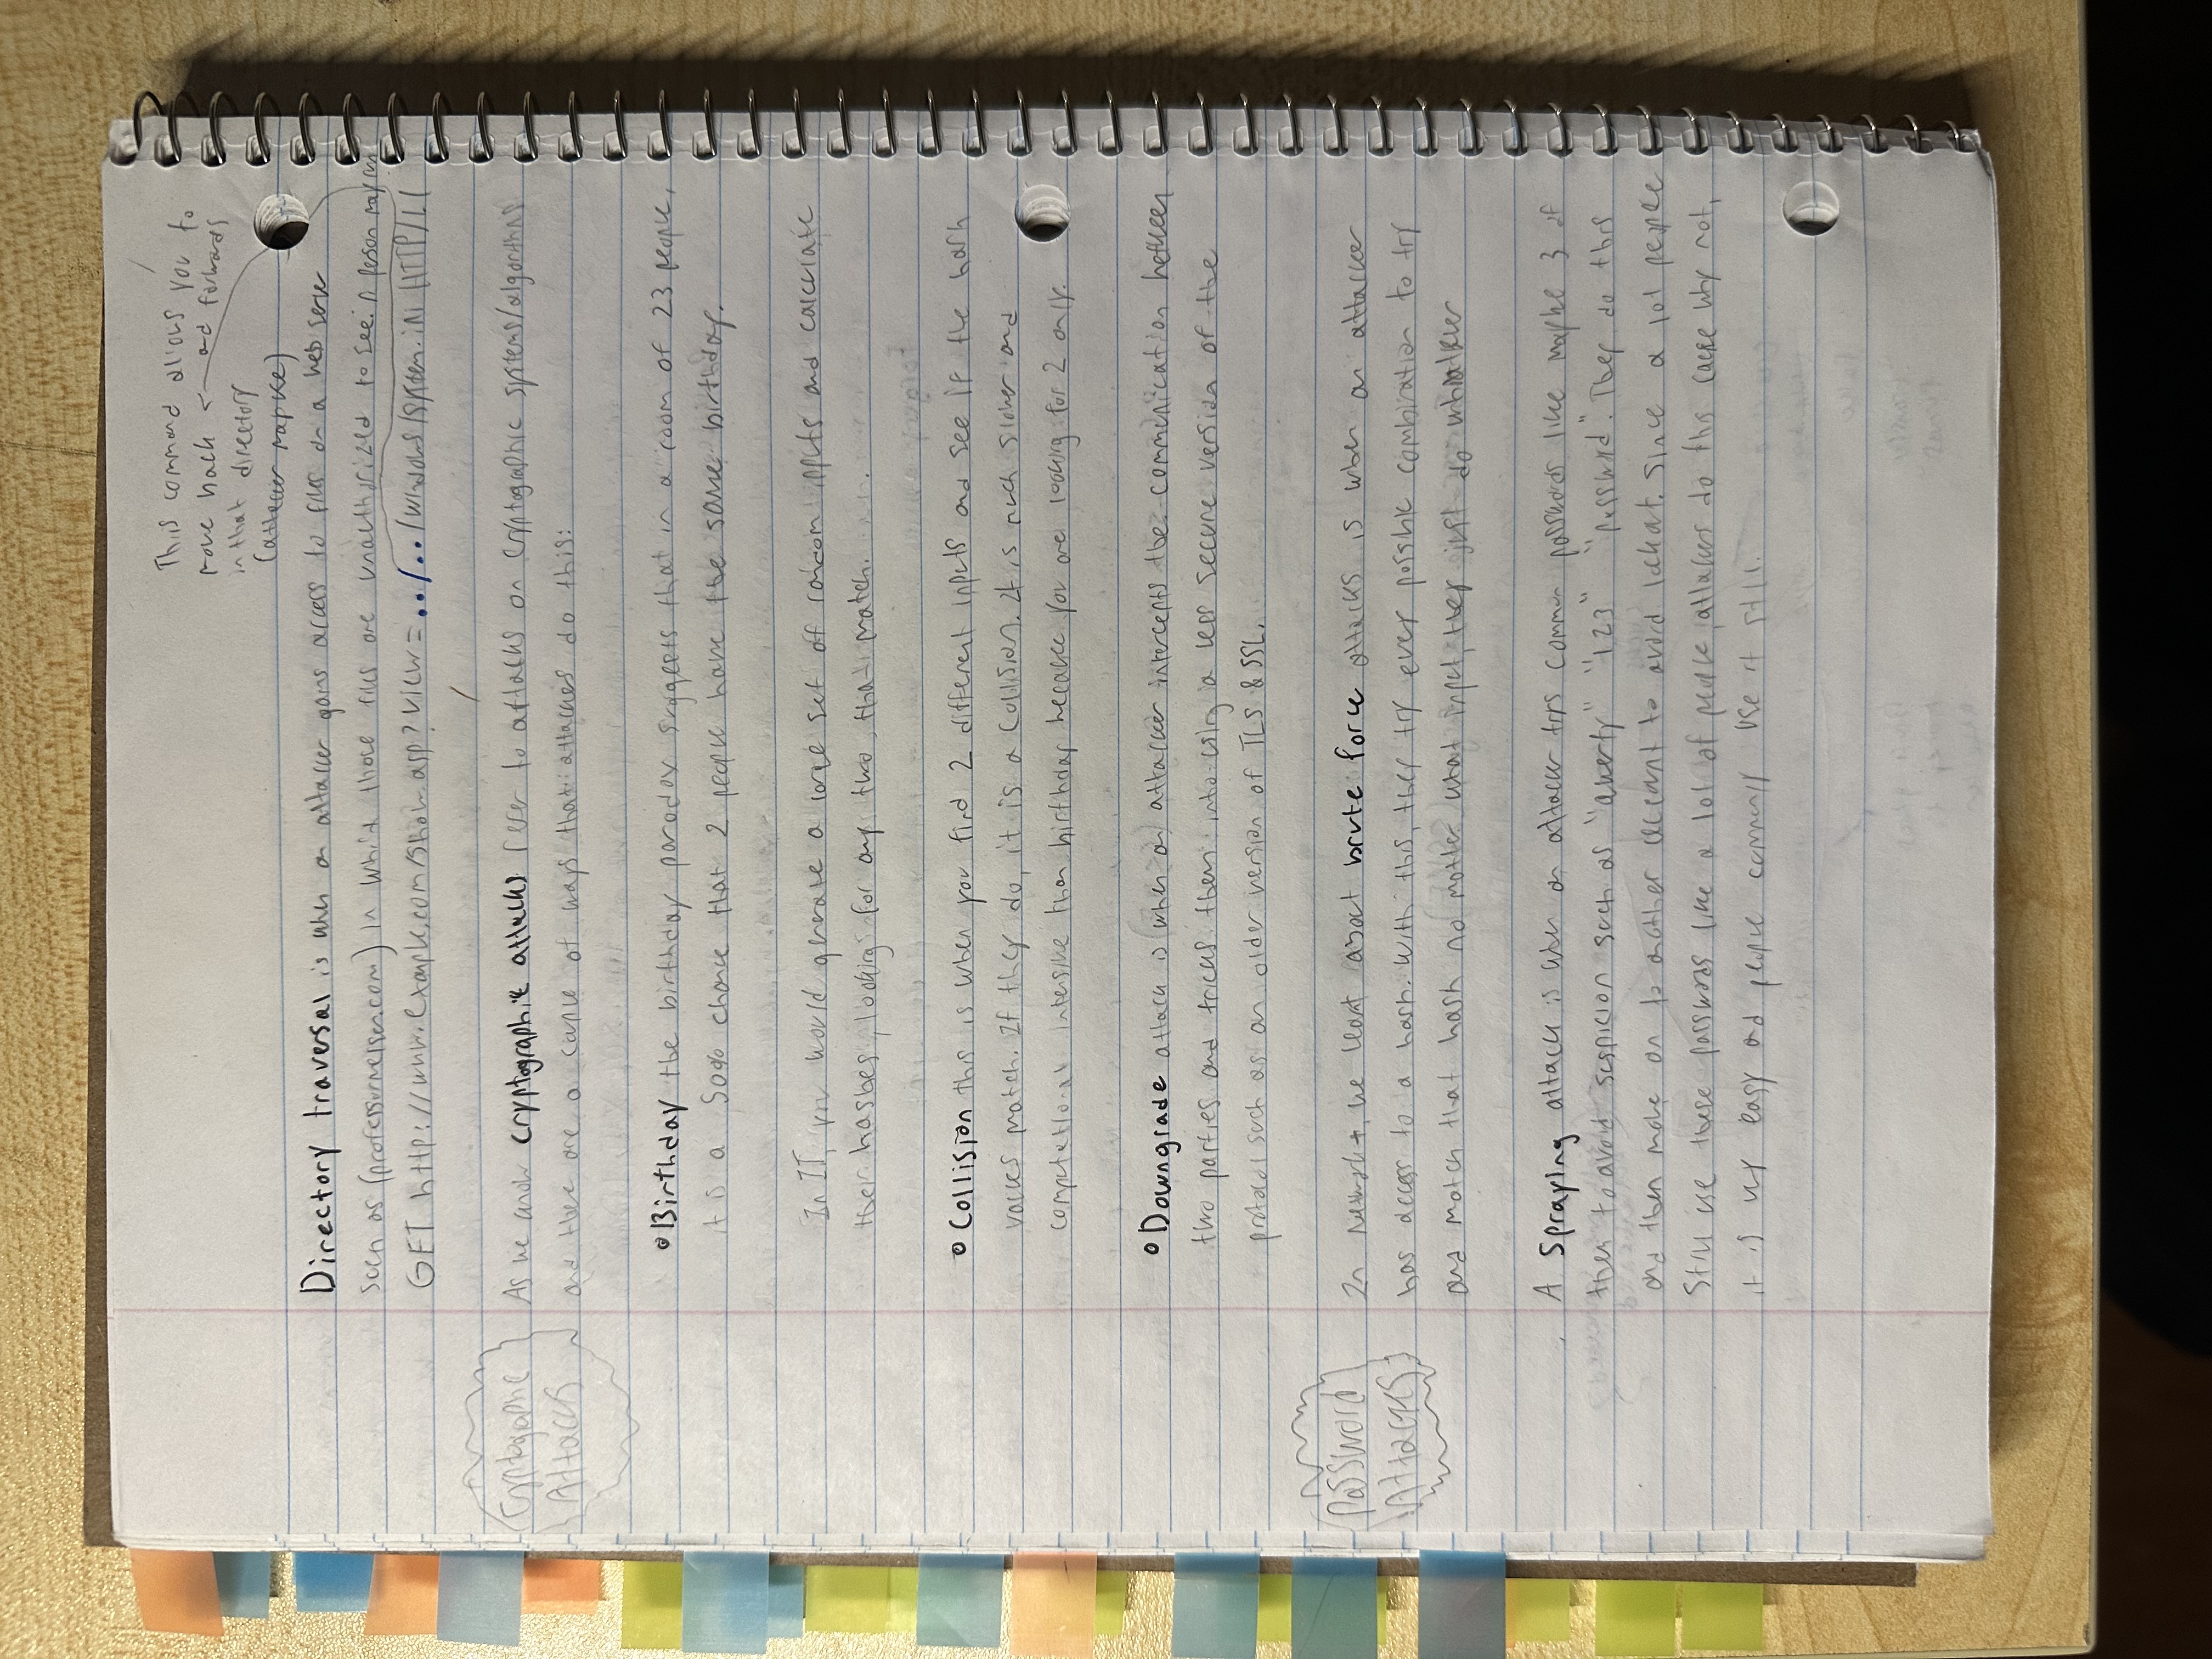 This command allows you to
move back <— and forwards
in that directory
(attacker maybe)
Directory traversal is when an attacker gains access to files on a web server
such as (professormesser.com) in which those files are unauthorized to see. A person may run
GET http://www.example.com/show.asp?view=../../windows/system.iN HTTP/1.1
Cryptographic
Attacks
As we know cryptographic attacks refer to attacks on cryptographic systems/algorithms
and there are a couple of ways that attackers do this:
Birthday the birthday paradox suggests that in a room of 23 people,
it is a 50% chance that 2 people have the same birthday.
In IT, you would generate a large set of random inputs and calculate
their hashes, looking for any two that match.
Collision this is when you find 2 different inputs and see if the hash
values match. If they do, it is a collision. It is much slower and
computational intensive than birthday because you are looking for 2 only.
Downgrade attack is when an attacker intercepts the communication between
two parties and tricks them into using a less secure version of the
protocol such as an older version of TLS & SSL.
Password
Attacks
In Network+, we learnt about brute force attacks is when an attacker
has access to a hash. With this, they try every possible combination to try
and match that hash no matter what input, they just do whatever
A spraying attack is when an attacker trys common passwords like maybe 3 of
them to avoid suspicion such as "qwerty" "123" "password". They do this
and then move on to another account to avoid lockout. Since a lot people
still use these passwords like a lot of people, attackers do this cause why not,
it is very easy and people commonly use it still.